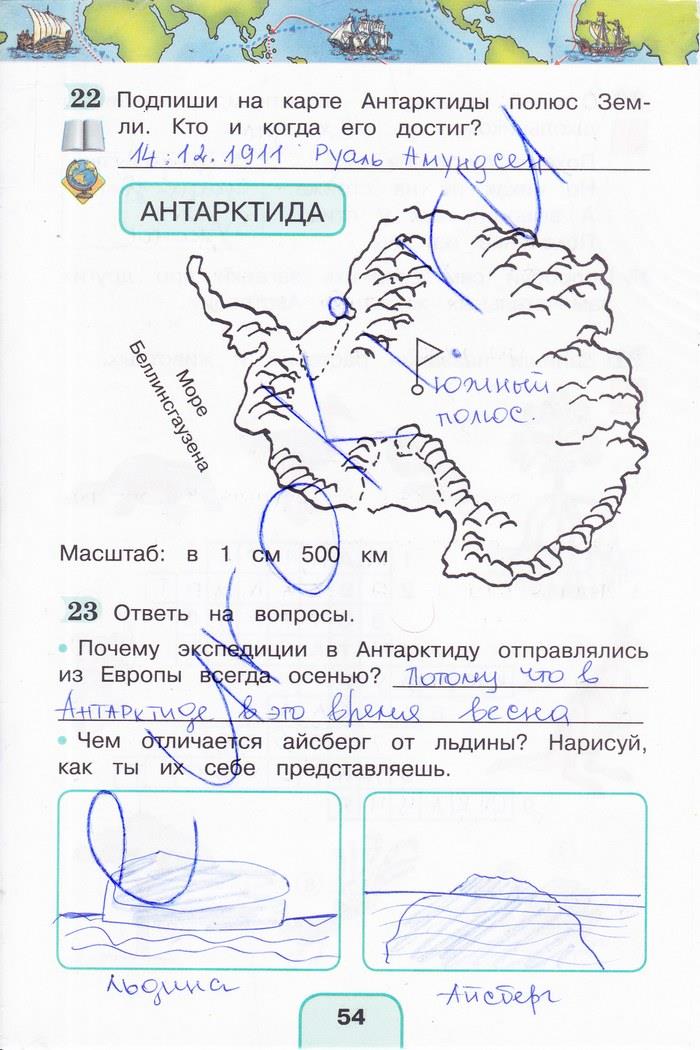 22 Подпиши на карте Антарктиды полюс Зем-
ли. Кто и когда его достиг?
14.12.1911 Руаль Амундсен
АНТАРКТИДА
Море
Беллинсгаузена
южный
полюс.
Масштаб: в 1 см 500 км
23 Ответь на вопросы.
• Почему экспедиции в Антарктиду отправлялись
из Европы всегда осенью? Потому что в
Антарктиде в это время весна
• Чем отличается айсберг от льдины? Нарисуй,
как ты их себе представляешь.
льдина
Айсберг
54